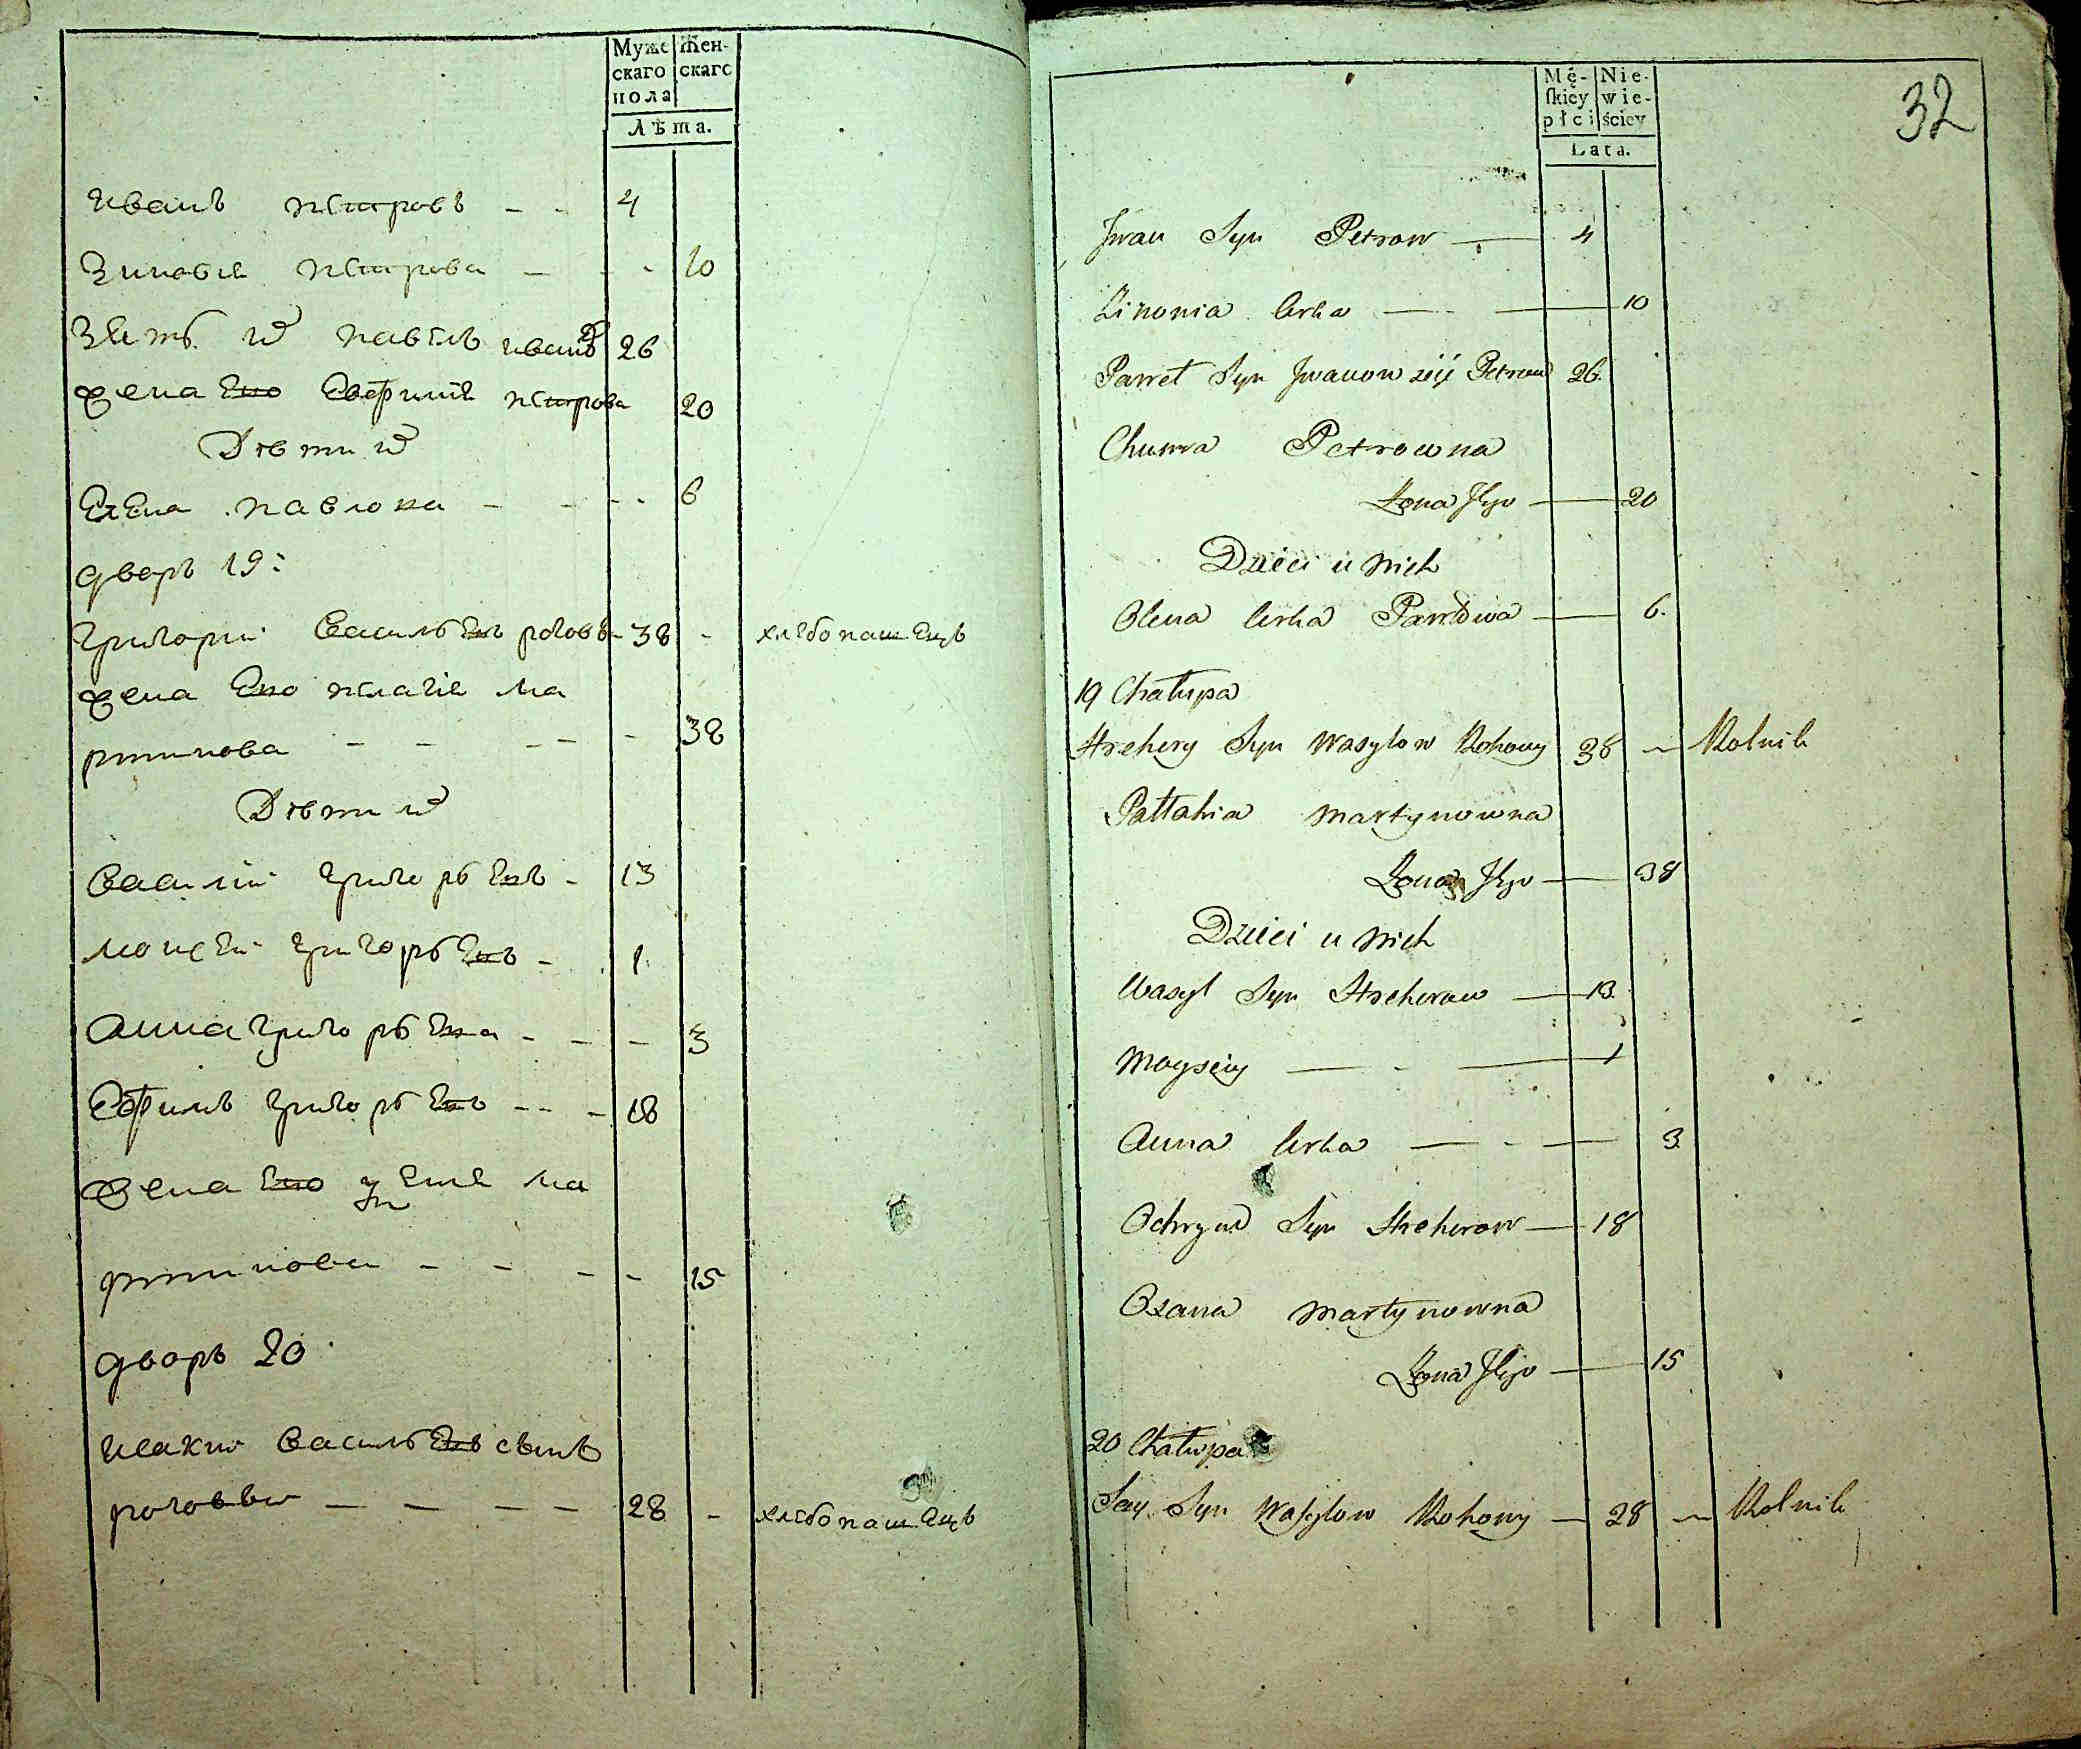 Муже Жен-
скаго скаго
пола
Лѣта.
иванъ петровъ - - 4
Зиновия петрова - - - 10
Зять их павелъ ивановъ 26
жена ево Евфимия петрова 20
Дѣти их
Елена павлова - - - - 6
дворъ 19:
григорий Васильевъ роговъ - 38 - хлебопашецъ
жена ево пелагия ма
ртинова - - - - - 38
Дѣти их
Василий григорьевъ - 13
моисей григорьевъ - 1
Анна григорьева - - - 3
Ефимъ григорьевъ - - - 18
жена ево ма
ртинова - - - - 15
дворъ 20
Васильевъ сынъ
- - - - 28 - хлебопашецъ
32
Mę- Nie-
skiey wie-
płci ściey
Lata.
Jwan Syn Petrow — 4
Zinonia Corka — — 10
Paweł Syn Jwanow zięć Petrow 26.
Petrowna
Zona Jego — 20
Dzieci u nich
Olena Corka Pawłowa — 6.
19 Chałupa
Hrehery Syn Wasylow Rohowy 38 — Rolnik
Pałahia Martynowna
Zona Jego — 38
Dzieci u nich
Wasyl Syn Hreherow — 13.
Moysiey — - — 1
Anna Corka — - — 3
Ochrym Syn Hreherow — 18
Oxana Martynowna
Zona Jego — 15
20 Chałupa
Syn Wasylow Rohowy — 28 — Rolnik